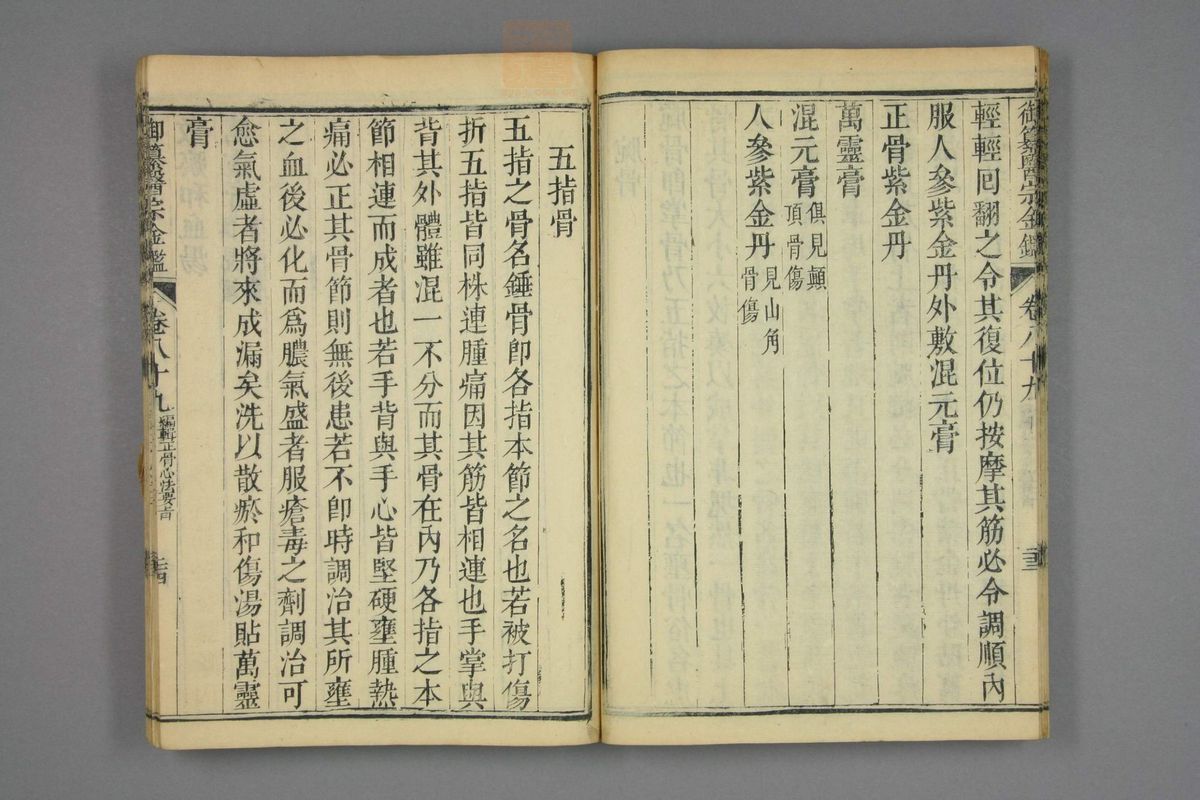 御纂醫宗金鑑 卷八十九
輕輕囘翻之令其復位仍按摩其筋必令調順內
服人參紫金丹外敷混元膏
正骨紫金丹
萬靈膏
混元膏俱見顛頂骨傷
人參紫金丹見山角骨傷
五指骨
五指之骨名錘骨卽各指本節之名也若被打傷
折五指皆同株連腫痛因其筋皆相連也手掌與
背其外體雖混一不分而其骨在內乃各指之本
節相連而成者也若手背與手心皆堅硬壅腫熱
痛必正其骨節則無後患若不卽時調治其所壅
之血後必化而爲膿氣盛者服瘡毒之劑調治可
愈氣虛者將來成漏矣洗以散瘀和傷湯貼萬靈
膏
御纂醫宗金鑑 卷八十九 編輯正骨心法要旨